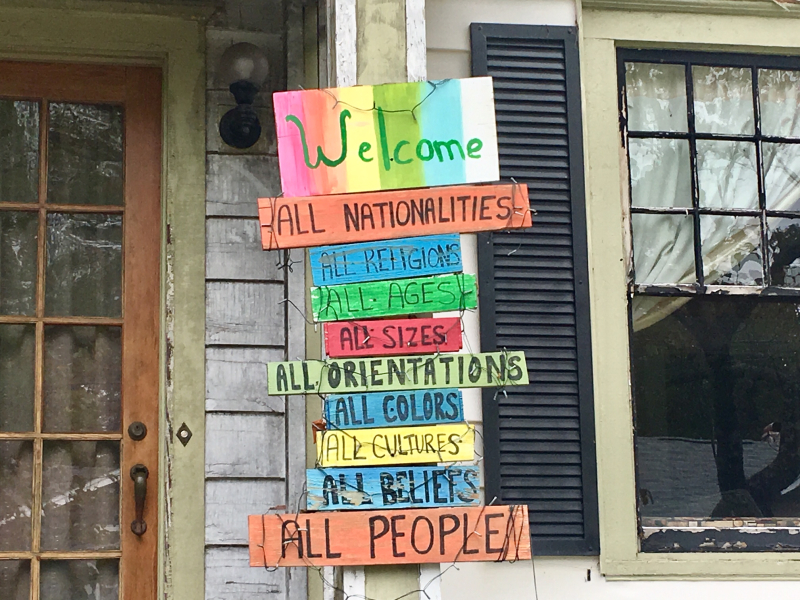 Welcome
ALL NATIONALITIES
ALL RELIGIONS
ALL AGES
ALL SIZES
ALL ORIENTATIONS
ALL COLORS
ALL CULTURES
ALL BELIEFS
ALL PEOPLE